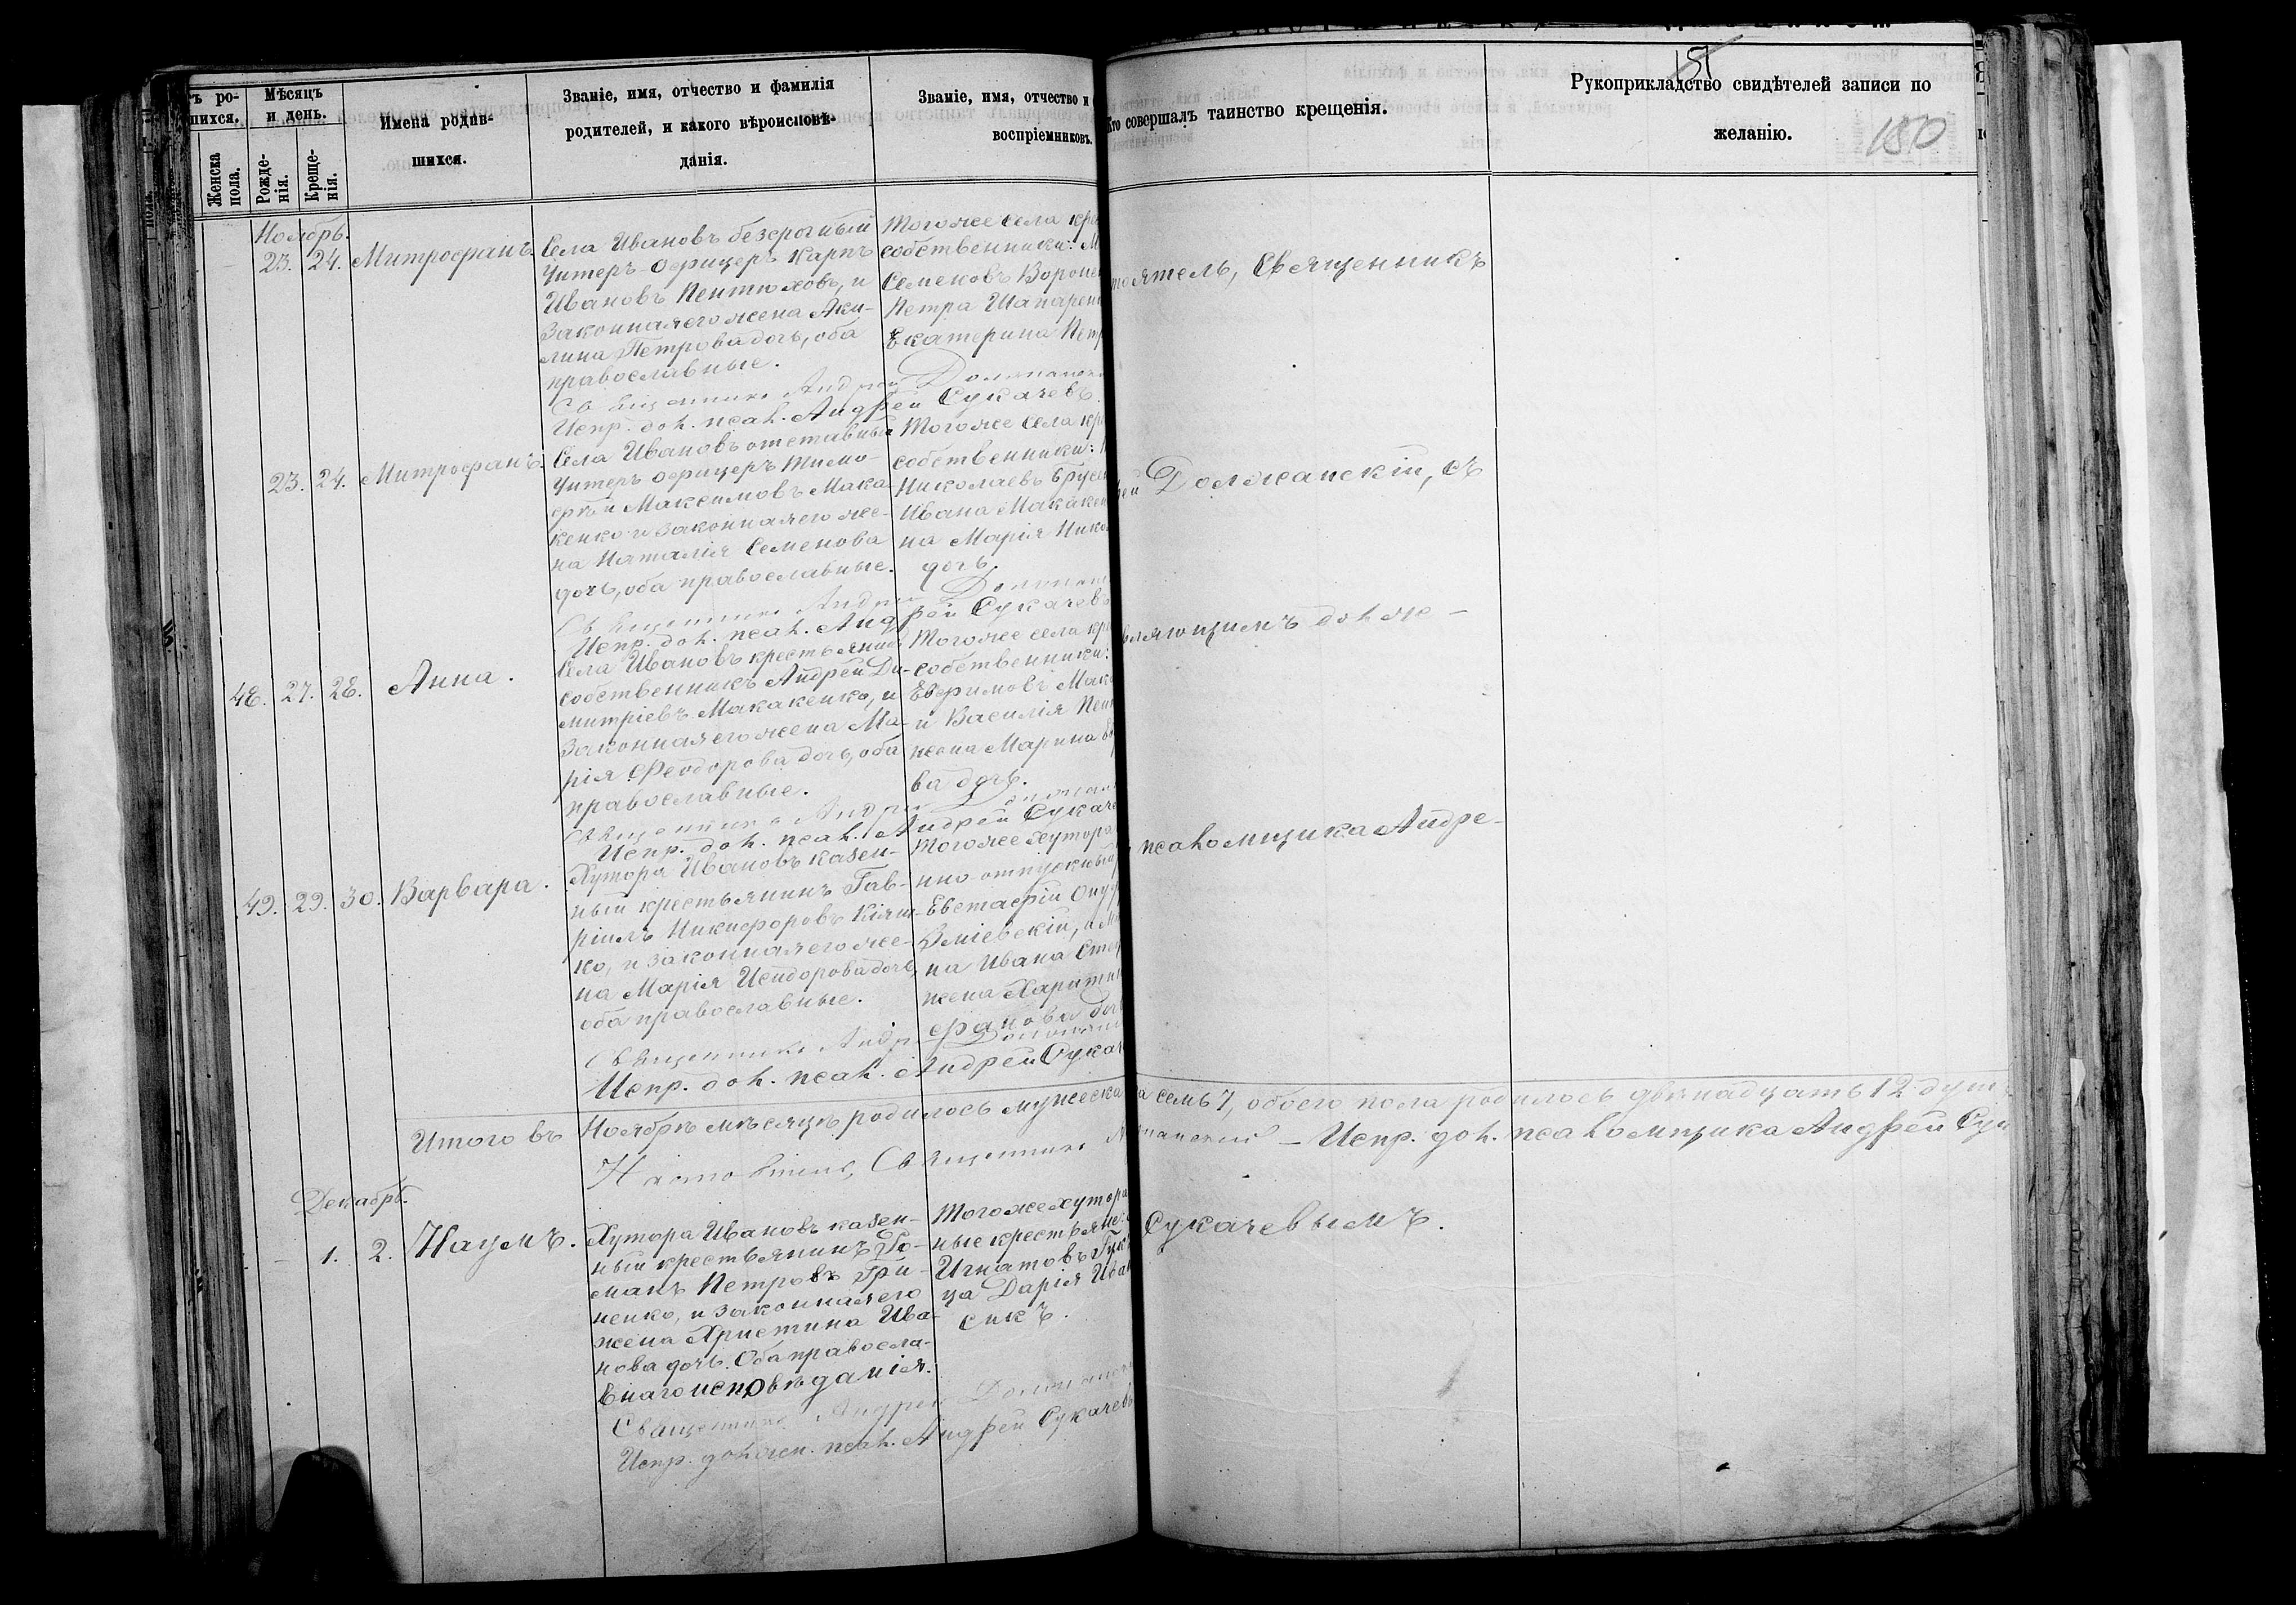 ъ ро-
шихся.
Мѣсяцъ
и день.
Женска
пола.
Рожде-
нія.
Креще-
нія.
Имена родив-
шихся.
Званіе, имя, отчество и фамилія
родителей, и какого вѣроисповѣ-
данія.
Званіе, имя, отчество и
воспріемниковъ.
Кто совершалъ таинство крещенія.
Рукоприкладство свидѣтелей записи по
желанію.
151
150
Ноябрь.
23. 24. Митрофанъ.
Села Ивановъ безсрочный
Унтеръ-офицеръ Карпъ
Ивановъ Пентюховъ, и
Законная его жена Аки-
лина Петрова дочь, оба
православные.
Тогоже села кре
собственники: М
Семеновъ Вороне
Петра Шапарен
Екатерина Петр
Священникъ Андрей Должанск
Испр. дол. псал. Андрей Сукачевъ.
23. 24. Митрофанъ.
Села Ивановъ отставный
Унтеръ офицеръ Тимо-
фей Максимовъ Мака-
кенко и законная его же-
на Наталія Семенова
дочь, оба православные.
Тогоже села кре
собственники:
Николаевъ Брусе
Ивана Макакен
на Марія Нико
дочь.
Священникъ Андрей Должан
Испр. дол. псал. Андрей Сукачевъ
48. 27. 28. Анна.
Села Ивановъ крестьянинъ
собственникъ Андрей Ди-
митріевъ Макакенко, и
Законная его жена Ма-
рія Феодорова дочь, оба
православные.
Тогоже села кре
собственники:
Ефимовъ Мак
и Василія Пен
жена Марина
ва дочь.
Священникъ Андрей Должан
Испр. дол. псал. Андрей Сукаче
49. 29. 30. Варвара.
Хутора Ивановъ казен-
ный крестьянинъ Гав-
ріилъ Никифоровъ Кіяш-
ко, и законная его же-
на Марія Исидорова дочь,
оба православные.
Тогоже хутора
нно-отпускный
Евстафій
Зміевскій, и
на Ивана Сте
жена Харити
фанова дочь
Священникъ Андрей Должанс
Испр. дол. псал. Андрей Сукач
Итого въ Ноябрѣ мѣсяцѣ родилось мужеска
а семь 7, обоего пола родилось двѣнадцать 12 душъ
Настоятель, Священникъ
жанский – Испр. дол. псаломщика Андрей Сук
Декабрь.
1. 2. Наумъ.
Хутора Ивановъ казен-
ный крестьянинъ Ро-
манъ Петровъ Гри-
ненко, и законная его
жена Христина Ива-
нова дочь. Оба православ-
внаго исповѣданія.
Тогоже хутора
ные крестьяне:
Игнатовъ Гук
ца Дарія Иван
сикъ.
Священникъ Андрей Должанск
Испр. должн. псал. Андрей Сукачевъ
тоятель, Священникъ
ей Должанскій, съ
вляющимъ долж-
псаломщика Андре-
Сукачевымъ.